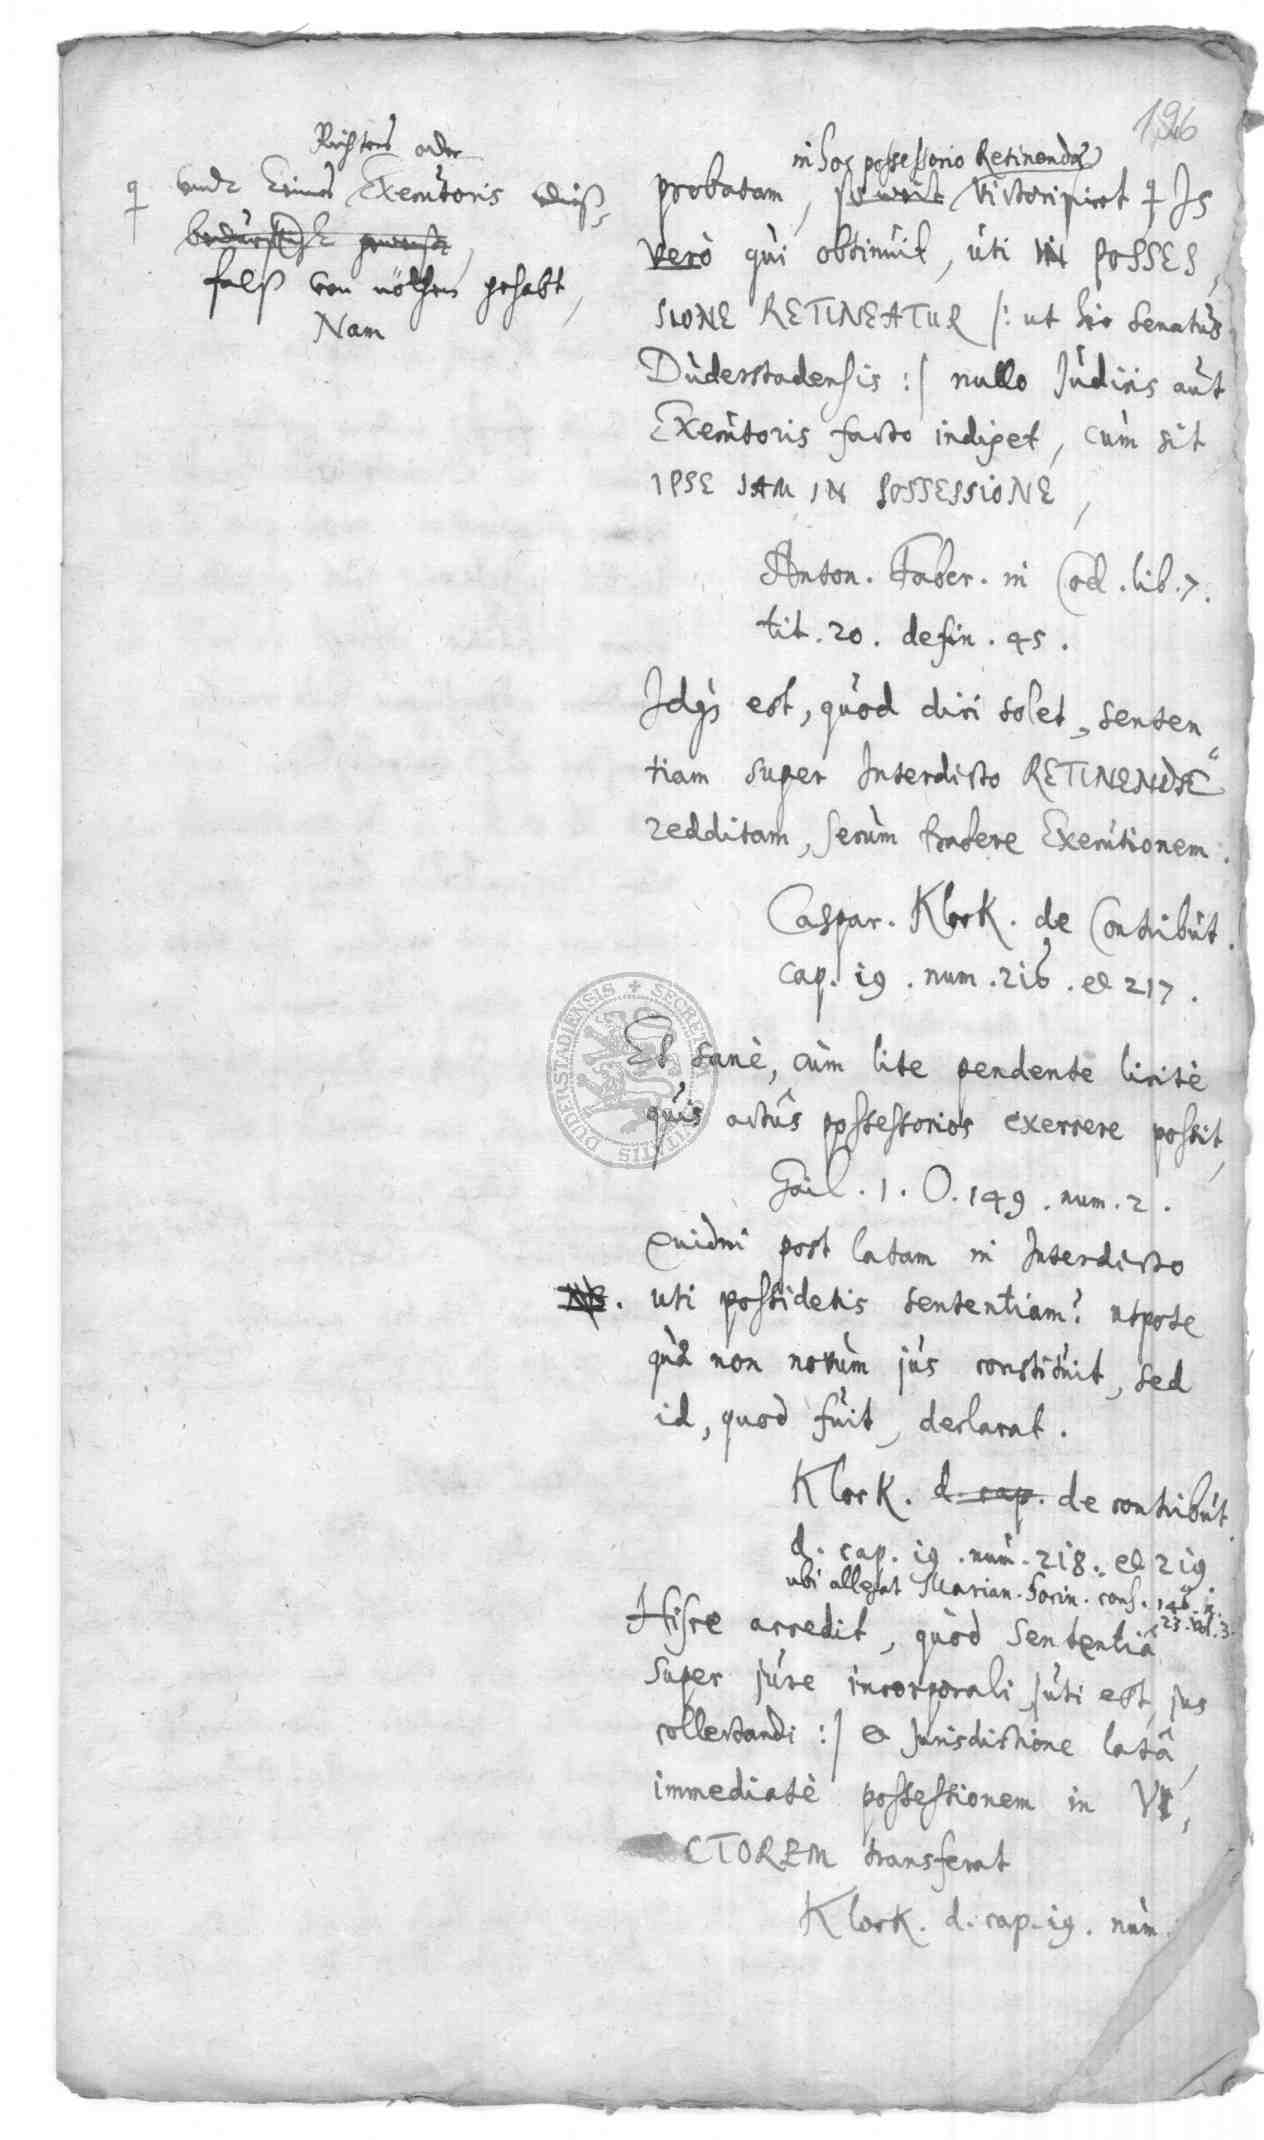 196
Richters oder
undt keines Executoris dieß-
bedürftig gewesen,
falß von nöthen gehabt,
Nam
in hoc possessorio Retinendæ
probatam, so weit victorisirt Is
verò qùi obtinùit, ùti IN POSSES,
SIONE RETINEATUR /: ut hic Senatùs
Dùderstadensis :/ nullo Jùdicis aùt
Execùtoris facto indiget, cùm sit
IPSE JAM IN POSSESSIONE,
Anton. Faber. in Cod. lib. 7.
tit. 20. defin. 45.
Idqs est, qùod dici solet, senten
tiam super Interdicto RETINENDÆ
redditam, secùm trahere Execùtionem.
Caspar. Klock. de Contribùt.
cap. 19. num. 216. et 217.
Et sanè, cùm lite pendente licitè
qùis actûs possessorios exercere possit,
Gail. 1. O. 149. num. 2.
quidni post latam in Interdicto
NB. uti possidetis sententiam? utpote
qùæ non novùm jùs constitùit, sed
id, quod fùit, declarat.
Klock. d. cap. de contribùt.
d. cap. 19. nùm. 218. et 219
ubi allegat Marian. Socin. cons. 146. n.
23. vol. 3.
Hisce accedit, qùòd Sententia
super jùre incorporali /ùti est, jus
collectandi :/ et Jurisdictione latâ,
immediatè possessionem in VI,
CTOREM transferat
Klock. d. cap. 19. nùm.
SECRETUM CIVITATIS DUDERSTADIENSIS